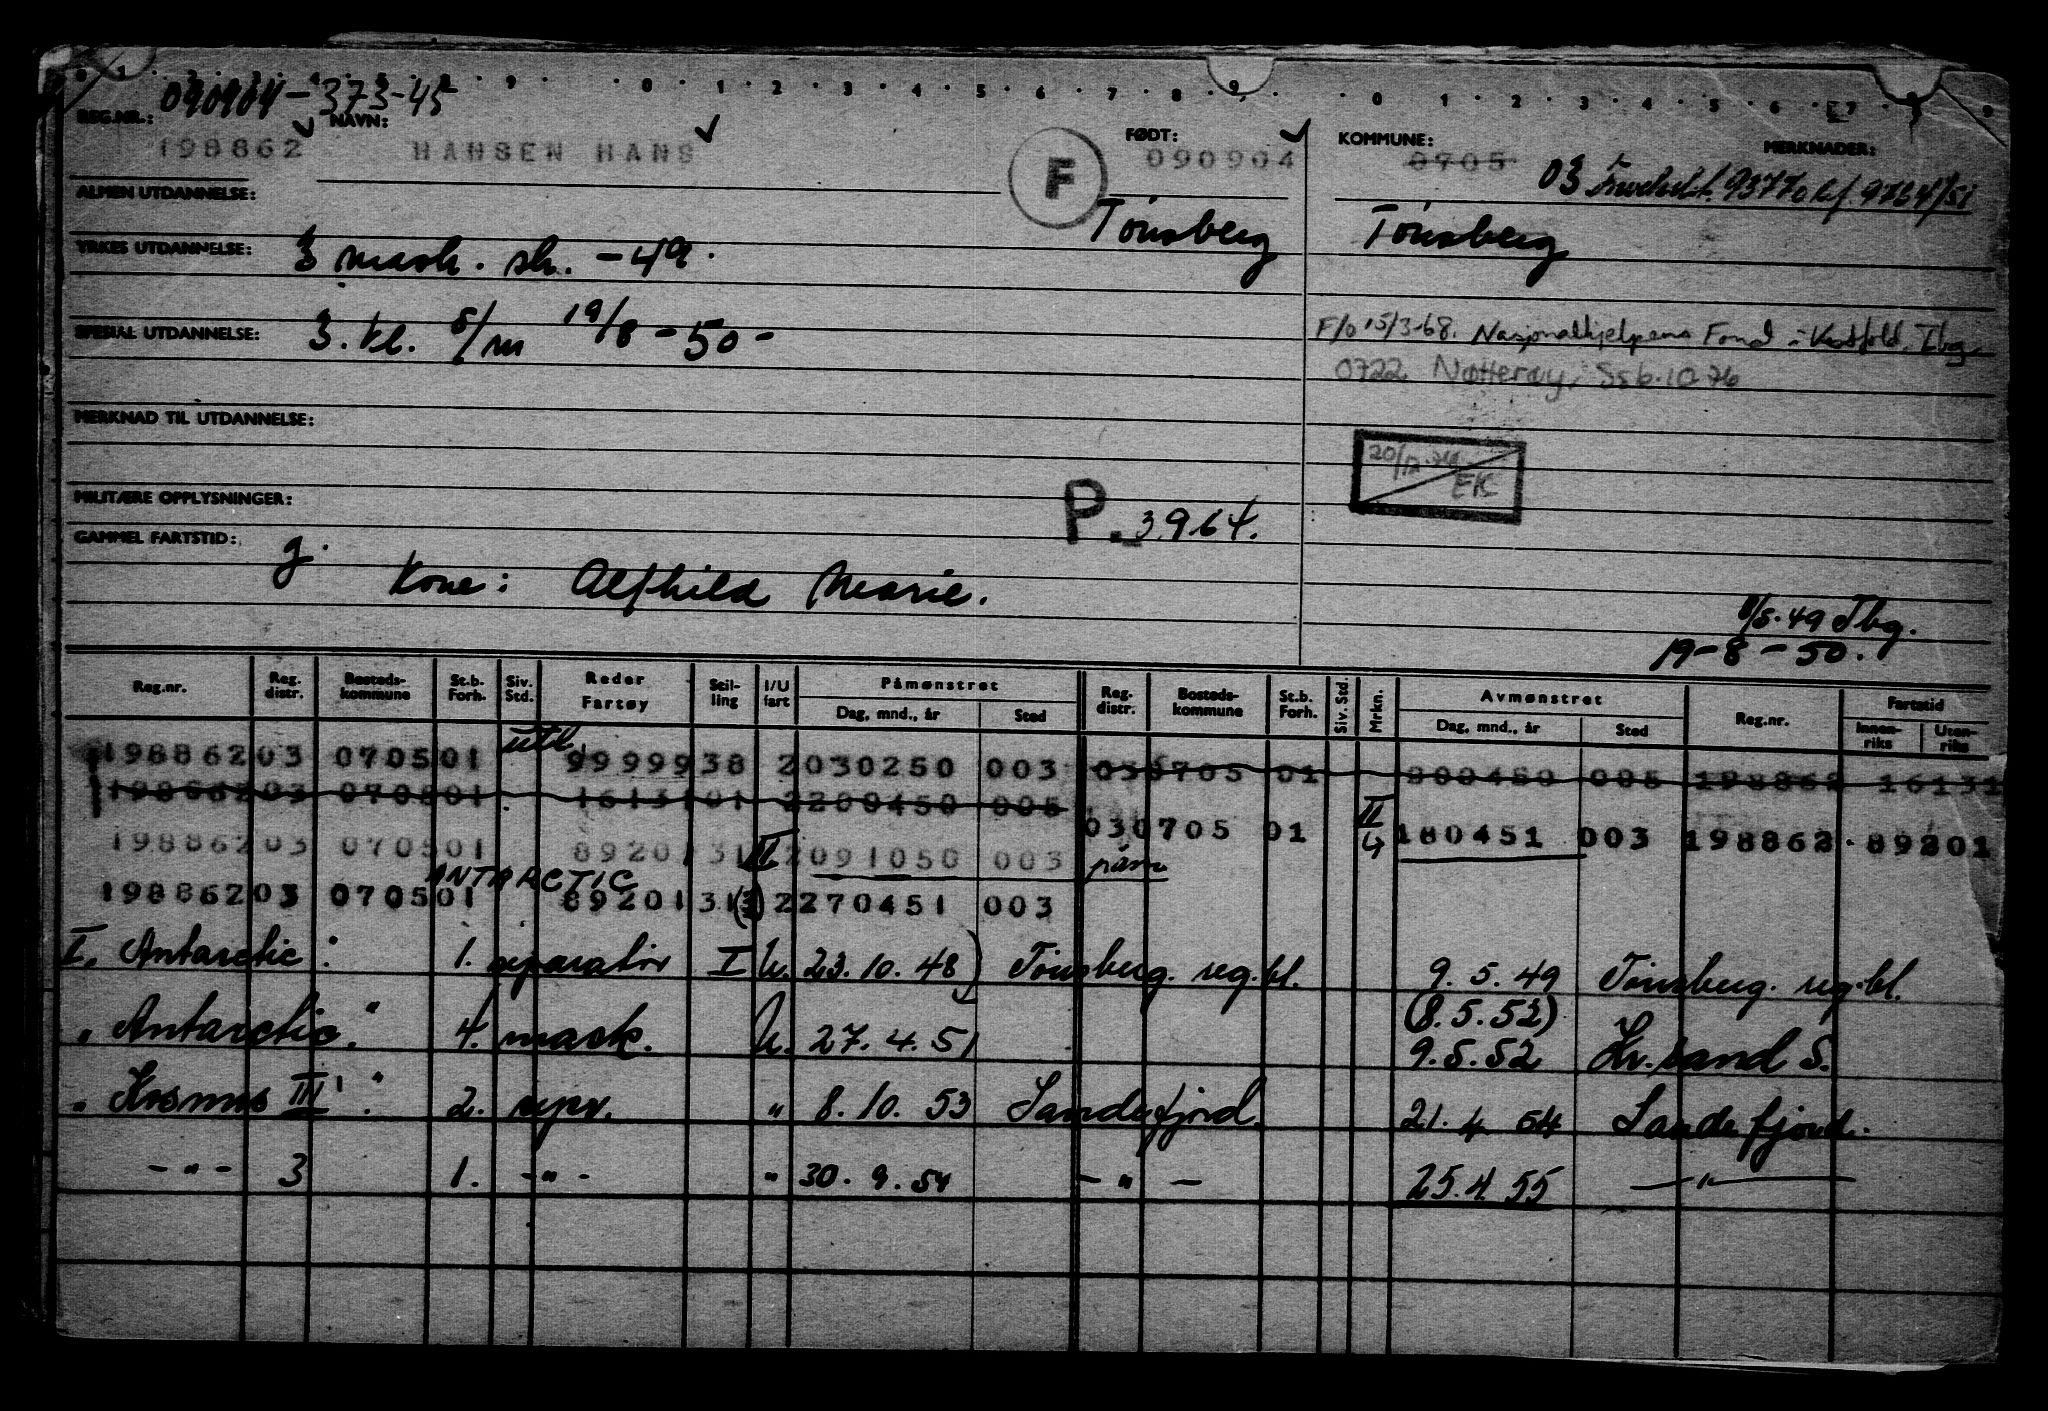 0 1 2 3 4 5 8 9 0 1 2 3 4 5 6 7 8 9 0 1 2 3 4 5 6 7 8 9
090904-373-45
REG.NR.: NAVN: FØDT: KOMMUNE: MERKNADER:
198862 HANSEN HANS F 090904 0705 03
ALMEN UTDANNELSE: Tønsberg Tønsberg
YRKES UTDANNELSE: 3 mask. sk. -49.
SPESIAL UTDANNELSE: 3. kl. s/m 19/8-50-
F/o 15/3-68. Nasjonalhjelpens Fond i Vestfold, Tbg.
0722 Nøtterøy, Ssb.10 76
MERKNAD TIL UTDANNELSE:
20/12.76 EK
MILITÆRE OPPLYSNINGER: P. 3964.
GAMMEL FARTSTID: g.
Kone: Alfhild Marie.
8/5.49 Tbg.
19-8-50.
Reg.nr. Reg. distr. Bosteds-kommune St.b. Forh. Siv. Std. Reder Fartøy Stil-ling I/U fart Påmønstret Dag, mnd., år Sted Reg. distr. Bosteds-kommune St.b. Forh. Siv. Std. Mrkn. Avmønstret Dag, mnd., år Sted Reg.nr. Fartstid Innen-riks Uten-riks
utl.
198862 03 0705 01 99999 38 2 030250 003 03 0705 01 200450 005 198862 16131
198862 03 0705 01 16131 01 2 200450 005
03 0705 01 II 180451 003 198862 89201
198862 03 0705 01 89201 31 II 2 091050 003 påm
ANTARCTIC
198862 03 0705 01 89201 31 (3) 2 270451 003
I. Antarctic: 1. separatør I U. 23.10.48) Tønsberg reg.bl. 9.5.49 Tønsberg reg.bl.
(8.5.52)
" Antarctic." 4. mask. U. 27.4.51 9.5.52 Kr.sand S.
" Kosmos III": 2. sepr. " 8.10.53 Sandefjord. 21.4 54 Sandefjord.
-"- 3 1. -"- " 30.9.54 -"- 25.4.55 -"-